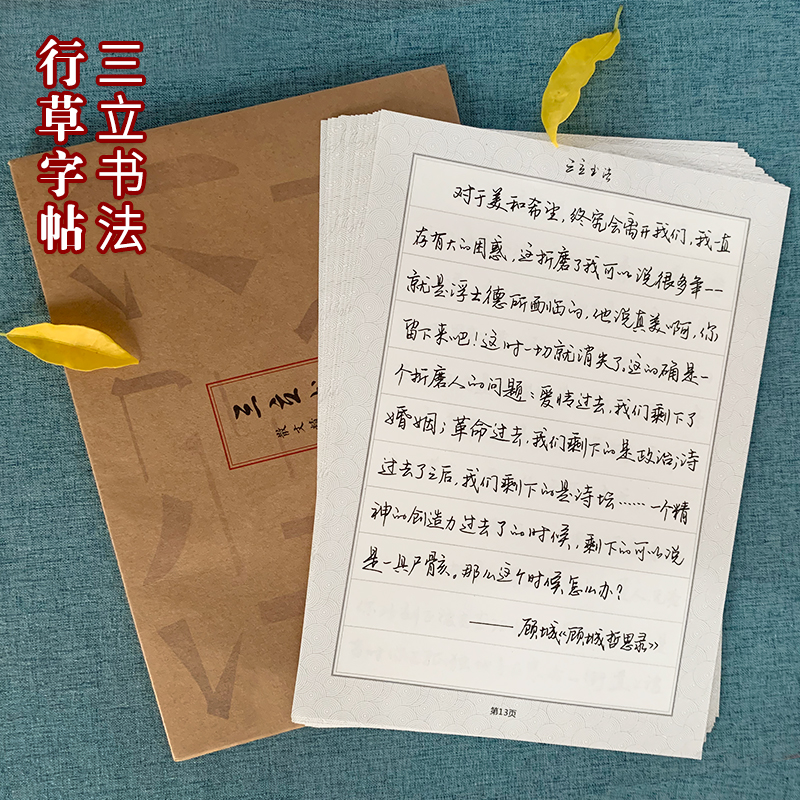 三立书法
行草字帖
三立书
散文
三立书法
对于美和希望，终究会离开我们，我一直
存有大的困惑，这折磨了我可以说很多年——
就是浮士德所面临的，他说真美啊，你
留下来吧！这时一切就消失了。这的确是一
个折磨人的问题：爱情过去，我们剩下了
婚姻；革命过去，我们剩下的是政治；诗
过去了之后，我们剩下的是诗坛……一个精
神的创造力过去了的时候，剩下的可以说
是一具尸骸。那么这个时候怎么办？
——顾城《顾城哲思录》
第13页